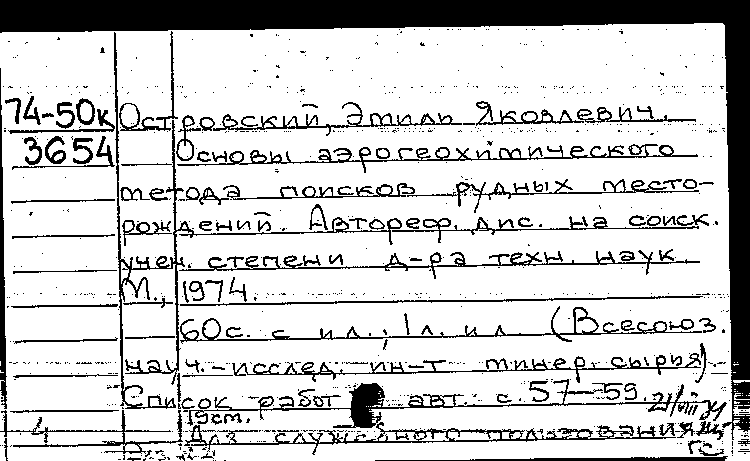 74-50к Островский, Эмиль Яковлевич.
3654 Основы аэрогеохимического
метода поисков рудных место-
рождений. Автореф. дис. на соиск.
учен. степени д-ра техн. наук
М., 1974.
60с. с ил.; 1 л. ил. (Всесоюз.
науч.-исслед. ин-т минер. сырья).
Список работ авт.: с. 57-59.
19см. 21/VIII
4 Для служебного пользования